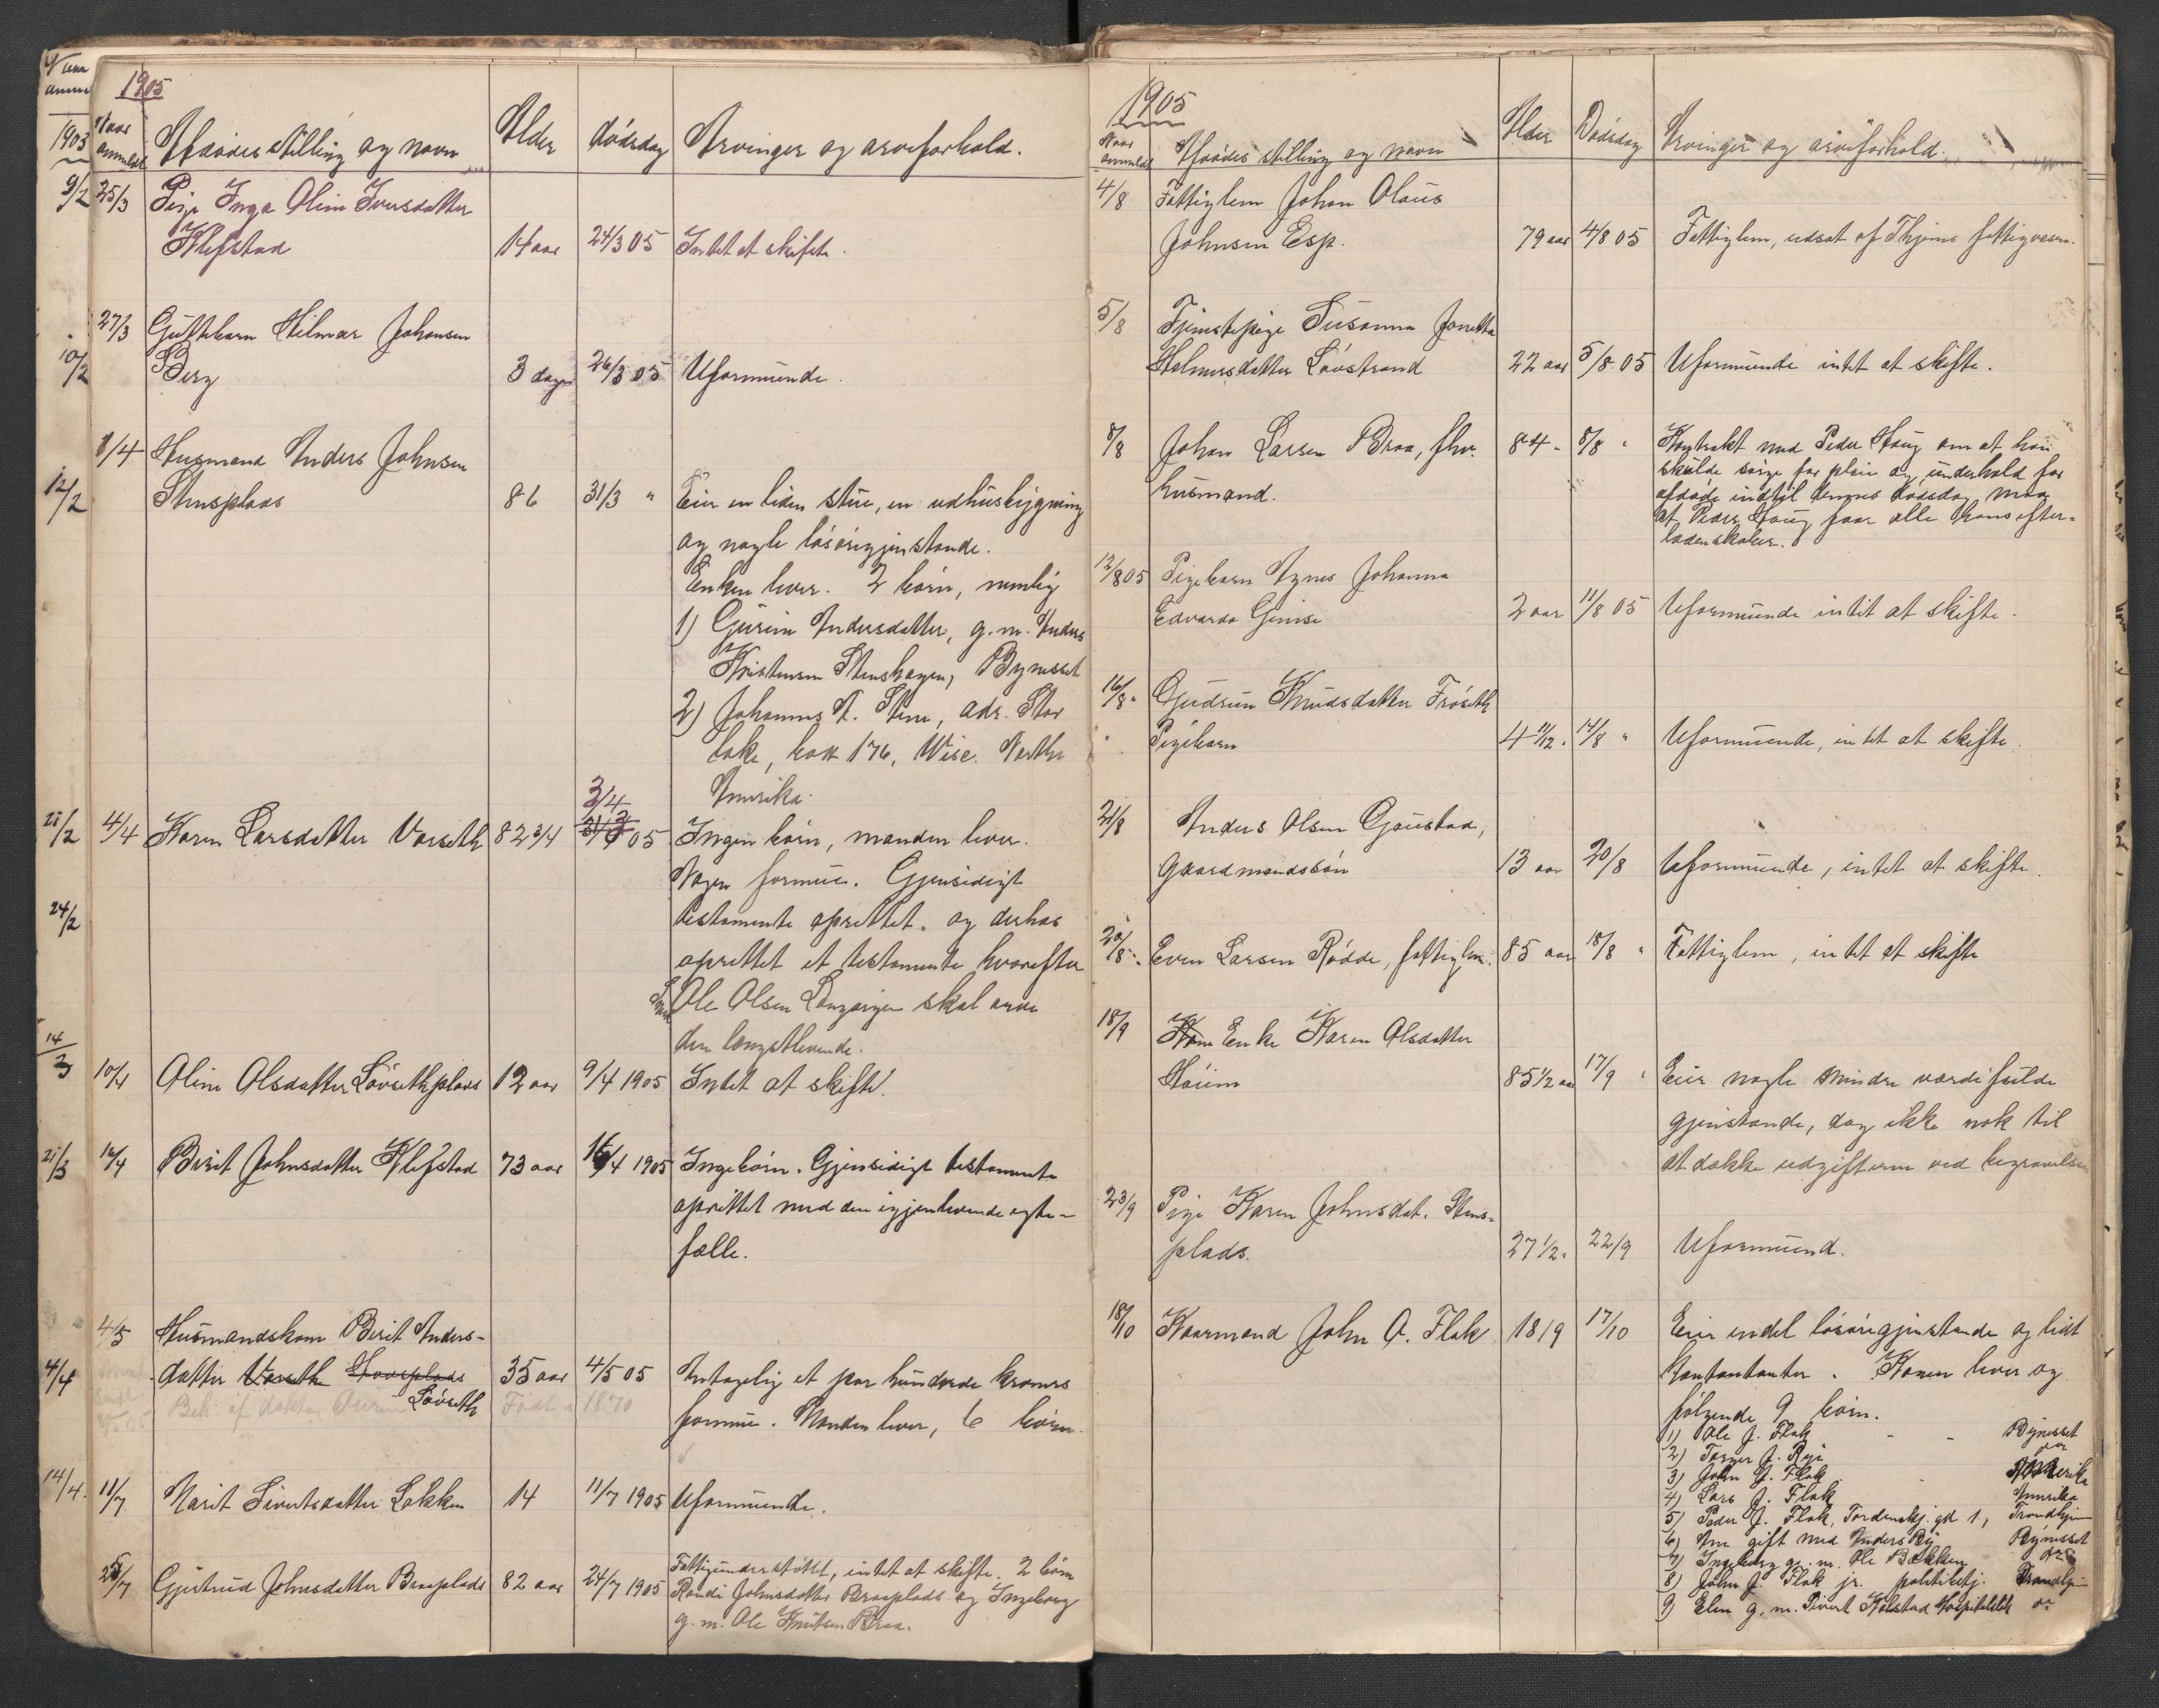 1905
Naar anmeldt
Afdødes stilling og navn
Alder
dødsdag
Arvinger og arveforhold.
1903
9/2
25/3 Pige Inga Oline Iversdatter
Klefstad 14 aar 24/3 05 Intet at skifte.
27/3 Guttebarn Hilmar Johansen
10/2
Berg 3 dage 26/3 05 Uformuende.
1/4 Husmand Anders Johnsen
12/2
Stensplads 86 31/3 " Eier en liden stue, en udhusbygning
og nogle løsøregjenstande.
Enken lever. 2 børn, nemlig
1) Gurine Andersdatter, g. m. Anders
Kristensen Stenshagen, Bynesset
2) Johannes A. Sten, adr. Star
lake, box 176, Wisc. North
Amerika.
3/4
21/2
4/4 Karen Larsdatter Vorseth 82 3/4 31/3 05 Ingen børn, manden lever.
Nogen formue. Gjensidigt
24/2
testamente oprettet. og derhos
oprettet et testamente hvorefter
Ole Olsen Langørgen skal arve
den længstlevende.
14/3
10/4 Oline Olsdatter Løvsethplads 12 aar 9/4 1905 Intet at skifte.
21/3
14/4 Berit Johnsdatter Klefstad 73 aar 16/4 1905 Ingebørn. Gjensidigt testamente
oprettet med den igjenlevende ægte-
fælle.
4/5 Husmandskone Berit Anders-
4/4
datter Vorseth Hovsplads 35 aar 4/5 05 Antagelig et par hundrede kroners
Løvseth Født i 1870
formue. Manden lever, 6 børn.
14/4.
11/7 Marit Sivertsdatter Løkken 14 11/7 1905 Uformuende.
25/7 Gjertrud Johnsdatter Braaplads 82 aar 24/7 1905 Fattigunderstøttet, intet at skifte. 2 børn
Randi Johnsdatter Braaplads og Ingeborg
g. m. Ole Knutsen Braa.
1905
Naar anmeldt
Afdødes stilling og navn
Alder
Dødsdag
Arvinger og arveforhold.
4/8 Fattiglem Johan Olaus
Johnsen Esp. 79 aar 4/8 05 Fattiglem, udsat af Thjems fattigvæsn.
5/8 Tjenestepige Susanna Jonetta
Halmersdatter Løvstrand 22 aar 5/8 05 Uformuende intet at skifte.
8/8 Johan Larsen Braa, fhv. 84 - 8/8 " Kontrakt med Peder Haug om at han
husmand.
skulde sørge for pleie og underhold for
afdøde indtil hennes dødsdag mod
at Peder Haug faar alle hans efter-
ladenskaber.
12/8 05 Pigebarn Agnes Johanna
Edvarda Gimse 2 aar 11/8 05 Uformuende intet at skifte.
16/8 " Gudrun Knudsdatter Frøseth
Pigebarn 4 11/12 " 14/8 " Uformuende, intet at skifte.
21/8 Anders Olsen Gaustad,
gaardmandssøn 13 aar 20/8 Uformuende, intet at skifte.
20/8 " Even Larsen Rødde, fattiglem. 85 aar 18/8 " Fattiglem, intet at skifte
18/9 Kone Enke Karen Olsdatter
Høiem 85 1/2 aar 17/9 " Eier nogle mindre værdifulde
gjenstande, dog ikke nok til
at dække udgifterne ved begravelsen
23/9 Pige Karen Johnsdat. Stens-
plads. 27 1/2 " 22/9 Uformuend.
18/10 Kaarmand John O. Flak 1819 17/10 Eier endel løsøregjenstande og lidt
kontantanter. Konen lever og
følgende 9 børn.
1) Ole J. Flak - - Bynesset
2) Torger J. Rye do
3) John J. Flak - Amerika
4) Lars J. Flak Amerika
5) Peder J. Flak, Tordenskj. gd 1, Trondhjem
6) Ane gift med Anders Rye Bynesset
7) Ingeborg g. m. Ole Bækken do
8) John J. Flak jr. politibetj. Trondhjem
9) Elen g. m. Sivert Kolstad Hospitalsløk do